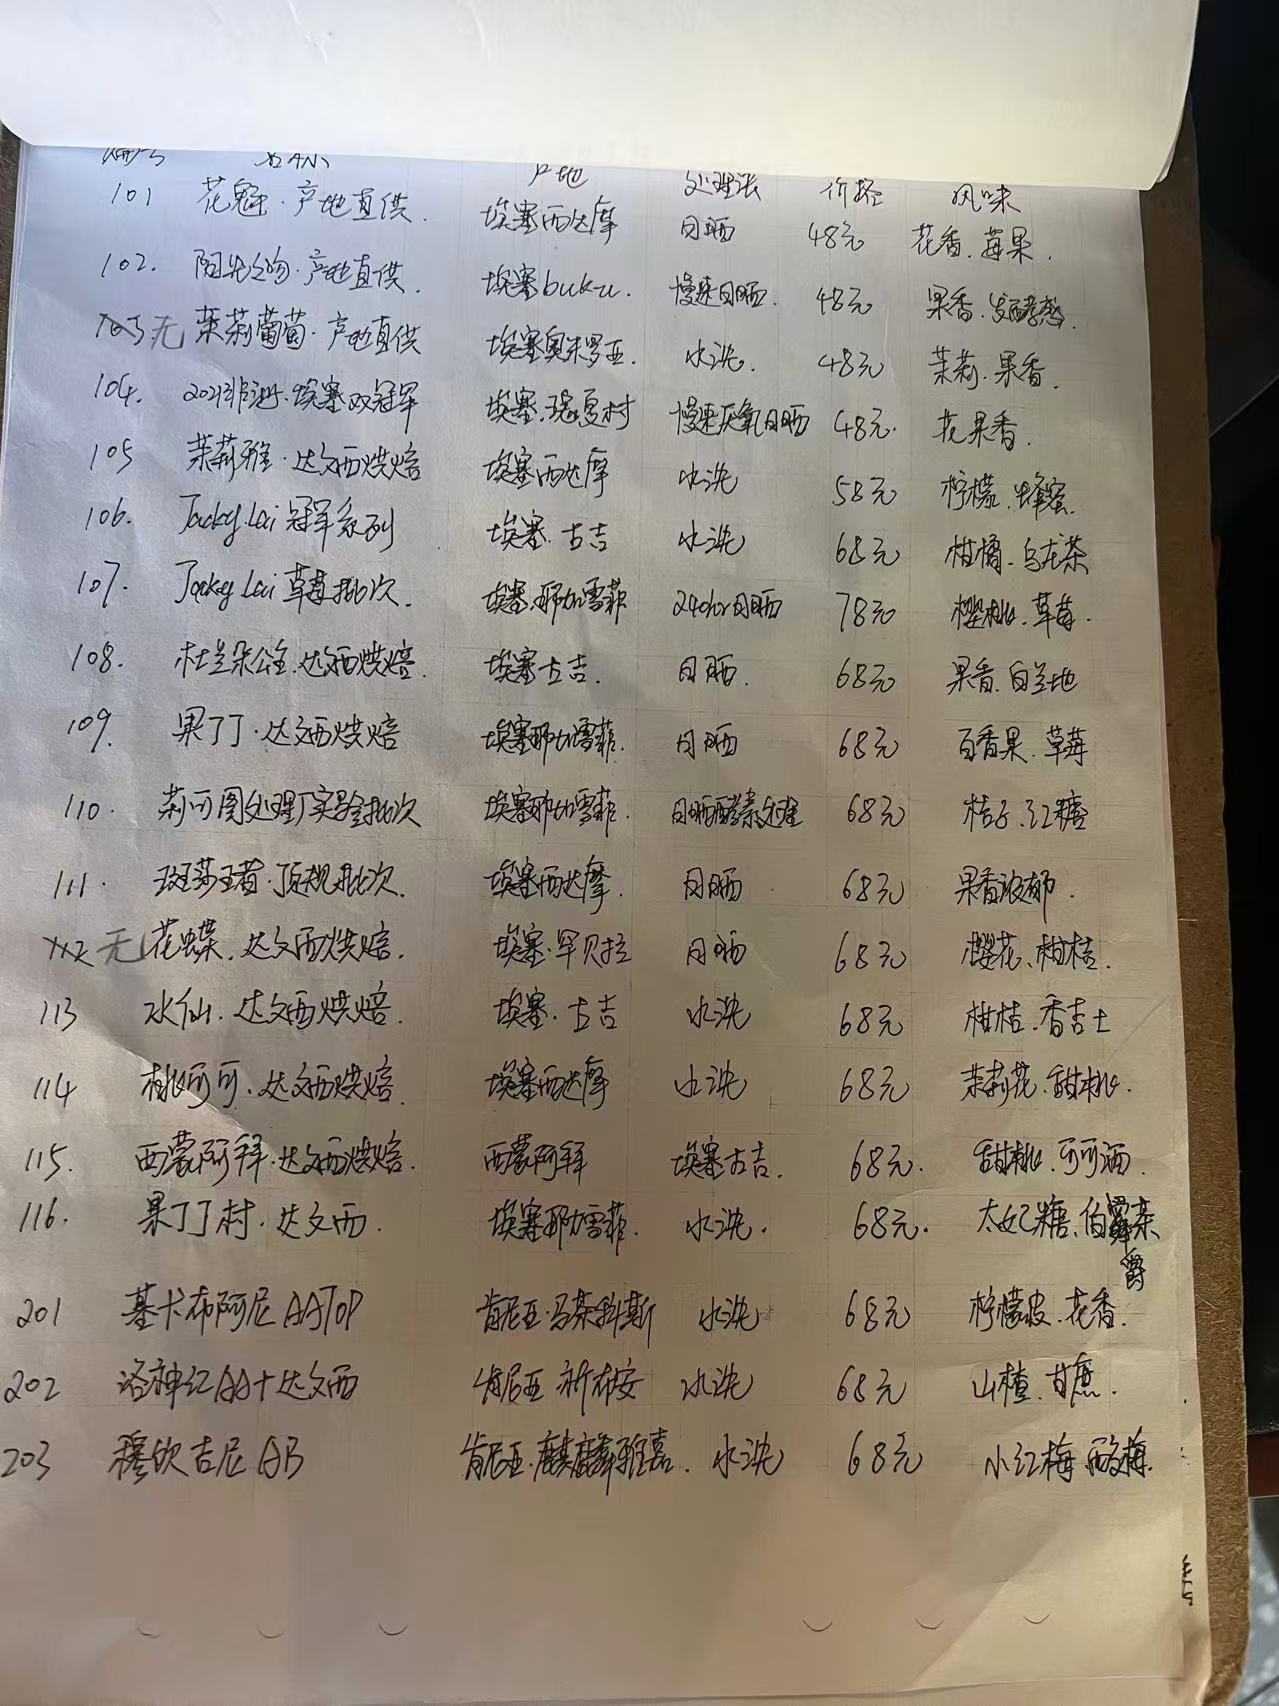 编号 名称 产地 处理法 价格 风味
101 花魁·产地直供. 埃塞西达摩 日晒 48元 花香.莓果.
102. 阳光之吻·产地直供. 埃塞buku. 慢速日晒. 48元 果香.发酵感.
103无 茉莉葡萄·产地直供 埃塞奥米罗亚. 水洗. 48元 茉莉.果香.
104. 2021非洲·埃塞双冠军 埃塞.瑰夏村 慢速厌氧日晒 48元. 花果香.
105 茉莉雅·达文西烘焙 埃塞西达摩 水洗 58元 柠檬.蜂蜜.
106. Jacky.Lai冠军系列 埃塞.古吉 水洗 68元 柑橘.乌龙茶
107. Jacky Lai草莓批次. 埃塞.耶加雪菲 240hr日晒 78元 樱桃.草莓.
108. 杜兰朵公主.达文西烘焙. 埃塞古吉. 日晒. 68元 果香.白兰地
109. 果丁丁·达文西烘焙 埃塞耶加雪菲. 日晒 68元 百香果.草莓
110. 莉可图处理厂实验批次 埃塞耶加雪菲. 日晒酵素处理 68元 桔子.红糖
111. 斑莎王者·顶规批次. 埃塞西达摩. 日晒 68元 果香浓郁.
112 无 花蝶.达文西烘焙. 埃塞·罕贝拉 日晒 68元 樱花、柑桔.
113 水仙.达文西烘焙. 埃塞.古吉 水洗 68元 柑桔.香吉士
114 桃可可.达文西烘焙. 埃塞西达摩 水洗 68元 茉莉花.甜桃.
115. 西蒙阿拜.达文西烘焙. 西蒙阿拜 埃塞古吉. 68元. 甜桃.可可酒.
116. 果丁丁村.达文西. 埃塞耶加雪菲. 水洗. 68元. 太妃糖、伯爵茶
201 基卡布阿尼AATOP 肯尼亚·马茶科斯 水洗 68元 柠檬皮.花香.
202 洛神红AA+达文西 肯尼亚 祈布安 水洗 68元 山楂.甘蔗.
203 穆钦吉尼AB 肯尼亚·麒麟雅嘉. 水洗 68元 小红梅.酸梅.